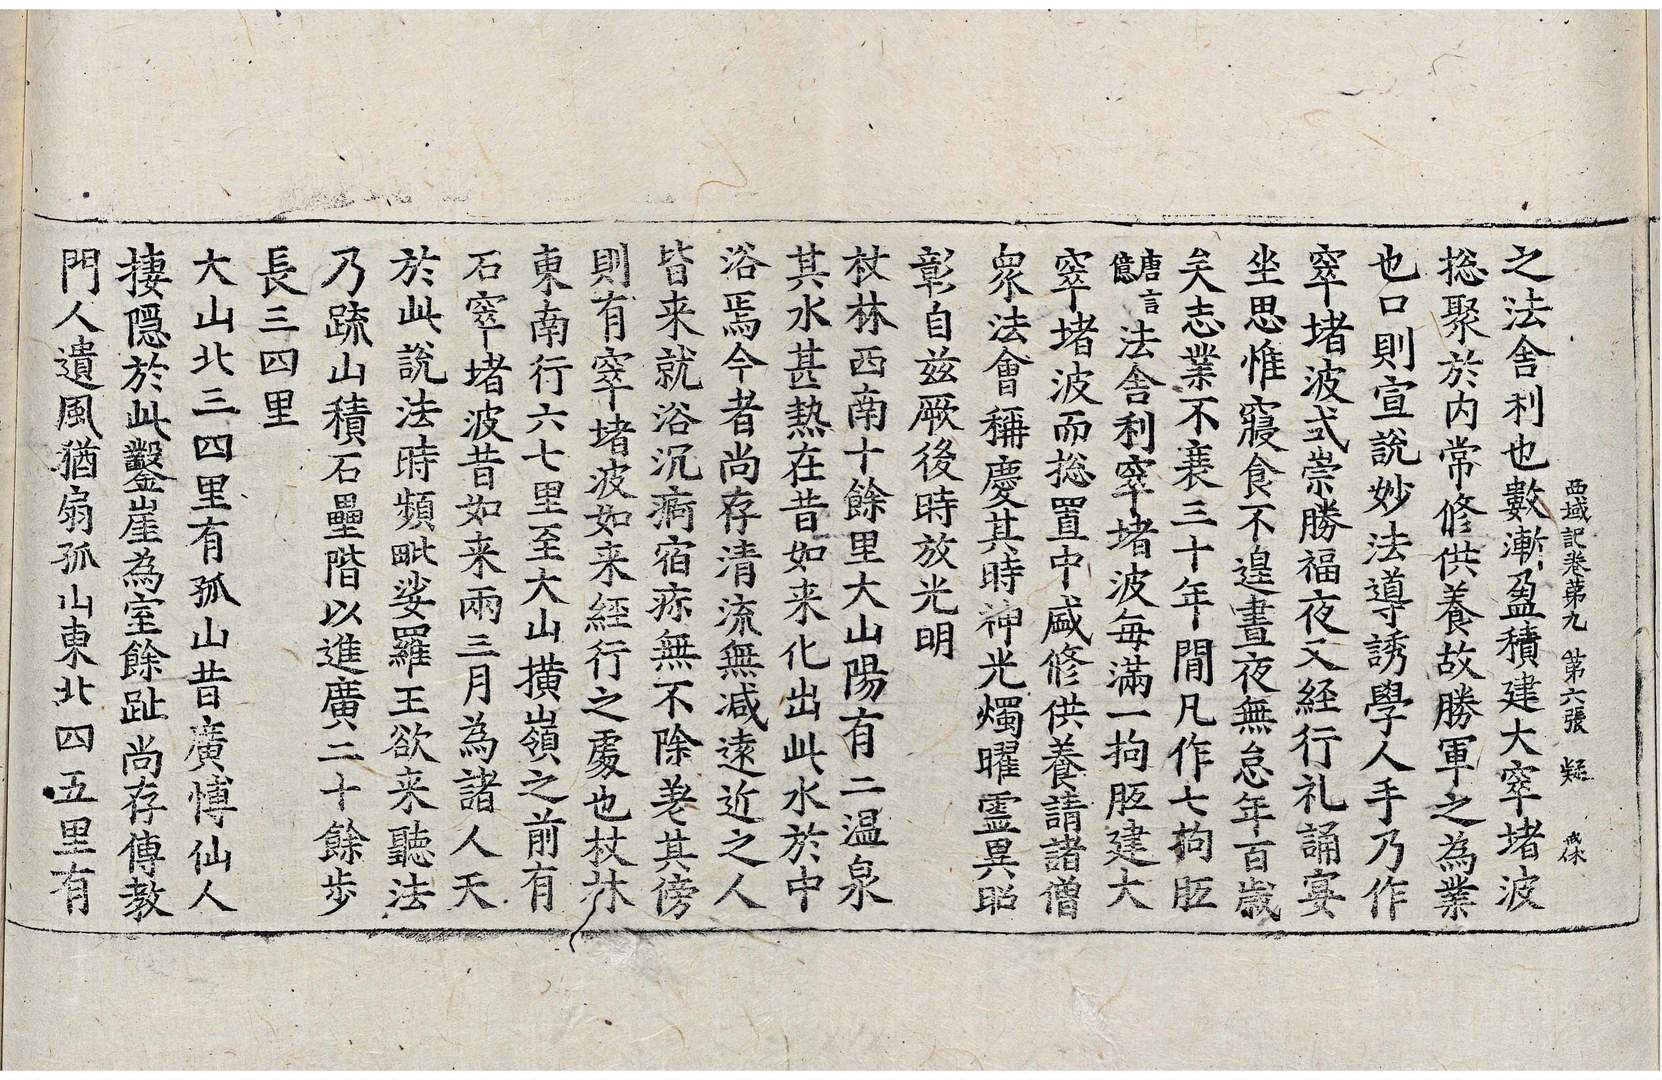 西域記卷第九　第六張　疑　戒休
之法舎利也數漸盈積建大窣堵波
捴聚於内常修供養故勝軍之為業
也口則宣說妙法導誘學人手乃作
窣堵波式崇勝福夜又経行礼誦宴
坐思惟寢食不遑晝夜無怠年百歳
矣志業不衰三十年閒凡作七拘胝
唐言億法舎利窣堵波每滿一拘胝建大
窣堵波而捴置中盛修供養請諸僧
衆法會稱慶其時神光燭曜霊異昭
彰自兹厥後時放光明
杖林西南十餘里大山陽有二温泉
其水甚熱在昔如来化出此水於中
浴焉今者尚存清流無减遠近之人
皆来就浴沉痾宿疹無不除差其傍
則有窣堵波如来経行之處也杖林
東南行六七里至大山横嶺之前有
石窣堵波昔如来兩三月為諸人天
於此說法時頻毗娑羅王欲来聽法
乃䟽山積石壘階以進廣二十餘歩
長三四里
大山北三四里有孤山昔廣愽仙人
棲隱於此鑿崖為室餘趾尚存傳教
門人遺風猶扇孤山東北四五里有